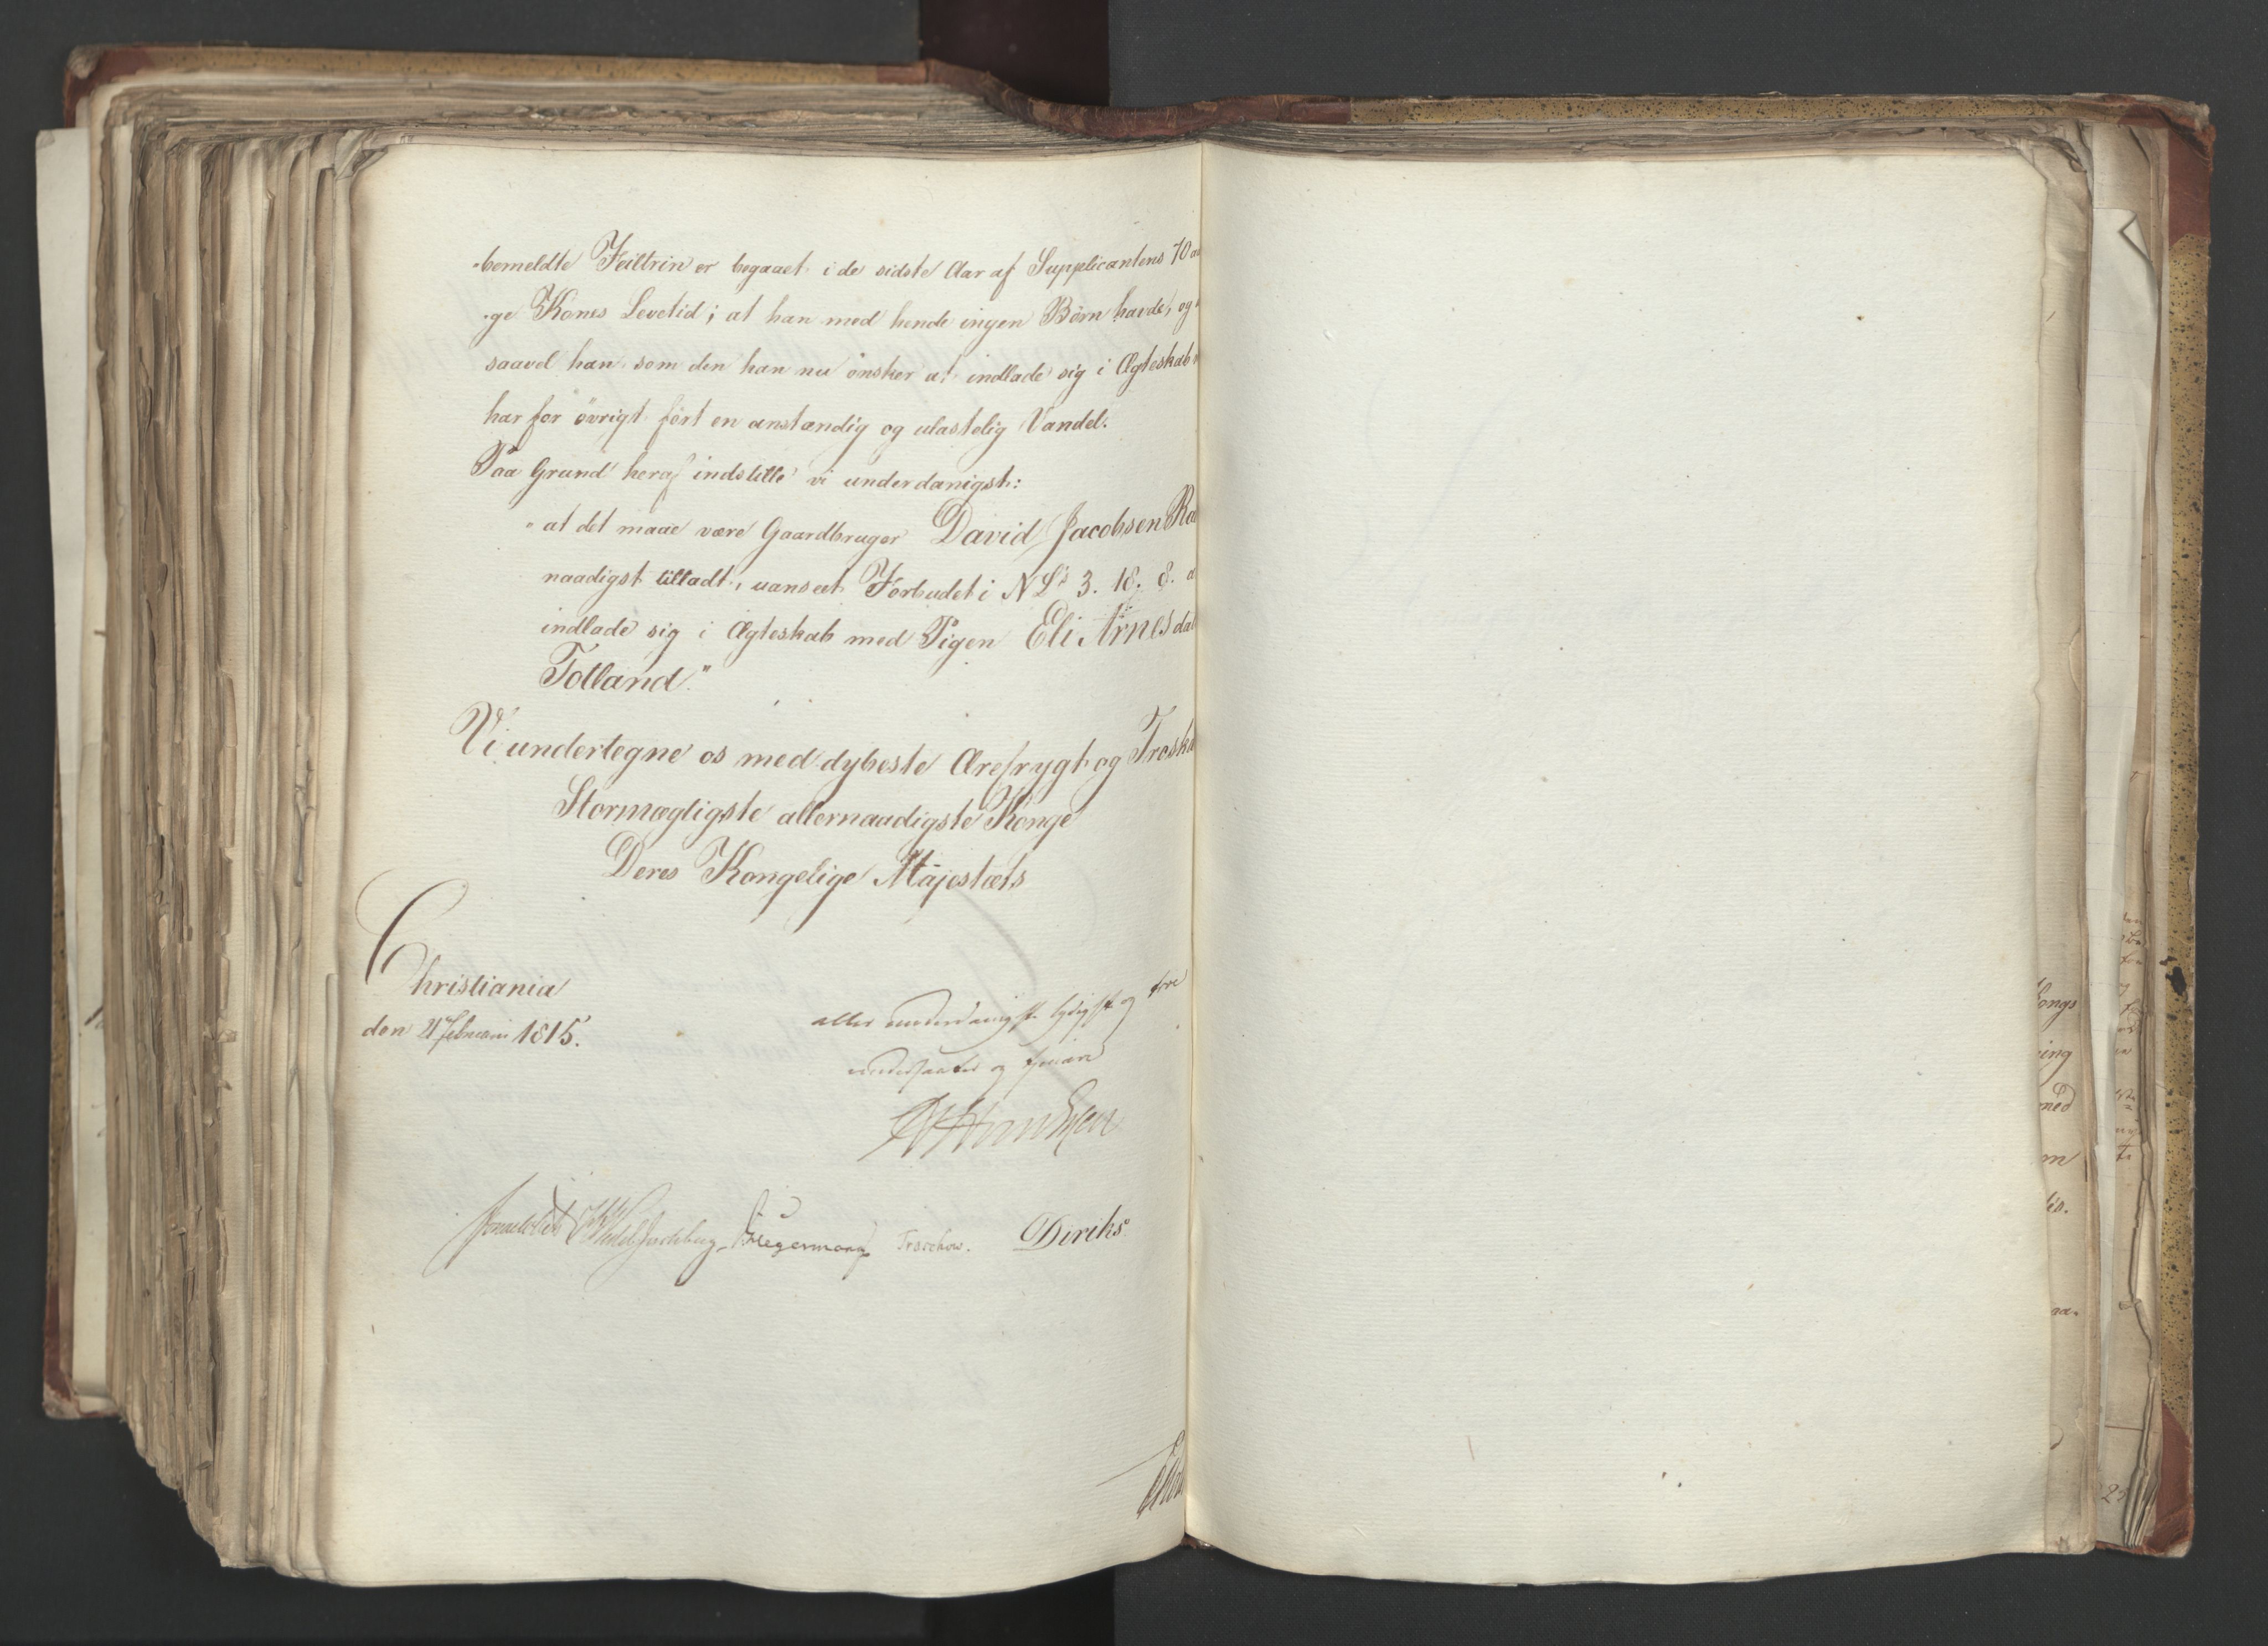 -bemeldte Feiltrin er begaaet i de sidste Aar af Supplicantens 70 aa
-ge Kones Levetid; at han med hende ingen Börn havde, og
saavel han som den han nu önsker at indlade sig i Ægteskab
har for övrigt fört en anstændig og ulastelig Vandel.
Paa Grund heraf indstille vi underdanigst:
"at det maae være Gaardbruger David Jacobsen Ra
naadigst tilladt, uanseet Forbudet i N L's 3. 18. 8. a
indlade sig i Ægteskab med Pigen Eli Arnesdat
Totland."
Vi undertegne os med dybeste Ærefrygt og Troska
Stormægtigste allernaadigste Konge
Deres Kongelige Majestæts
Christiania
den 21 Februari 1815.
aller underdanigste lydigste og troe
undersaatter og tjenere
Sommerhielm Wedel Jarlsberg Hegermann Treschow. Diriks